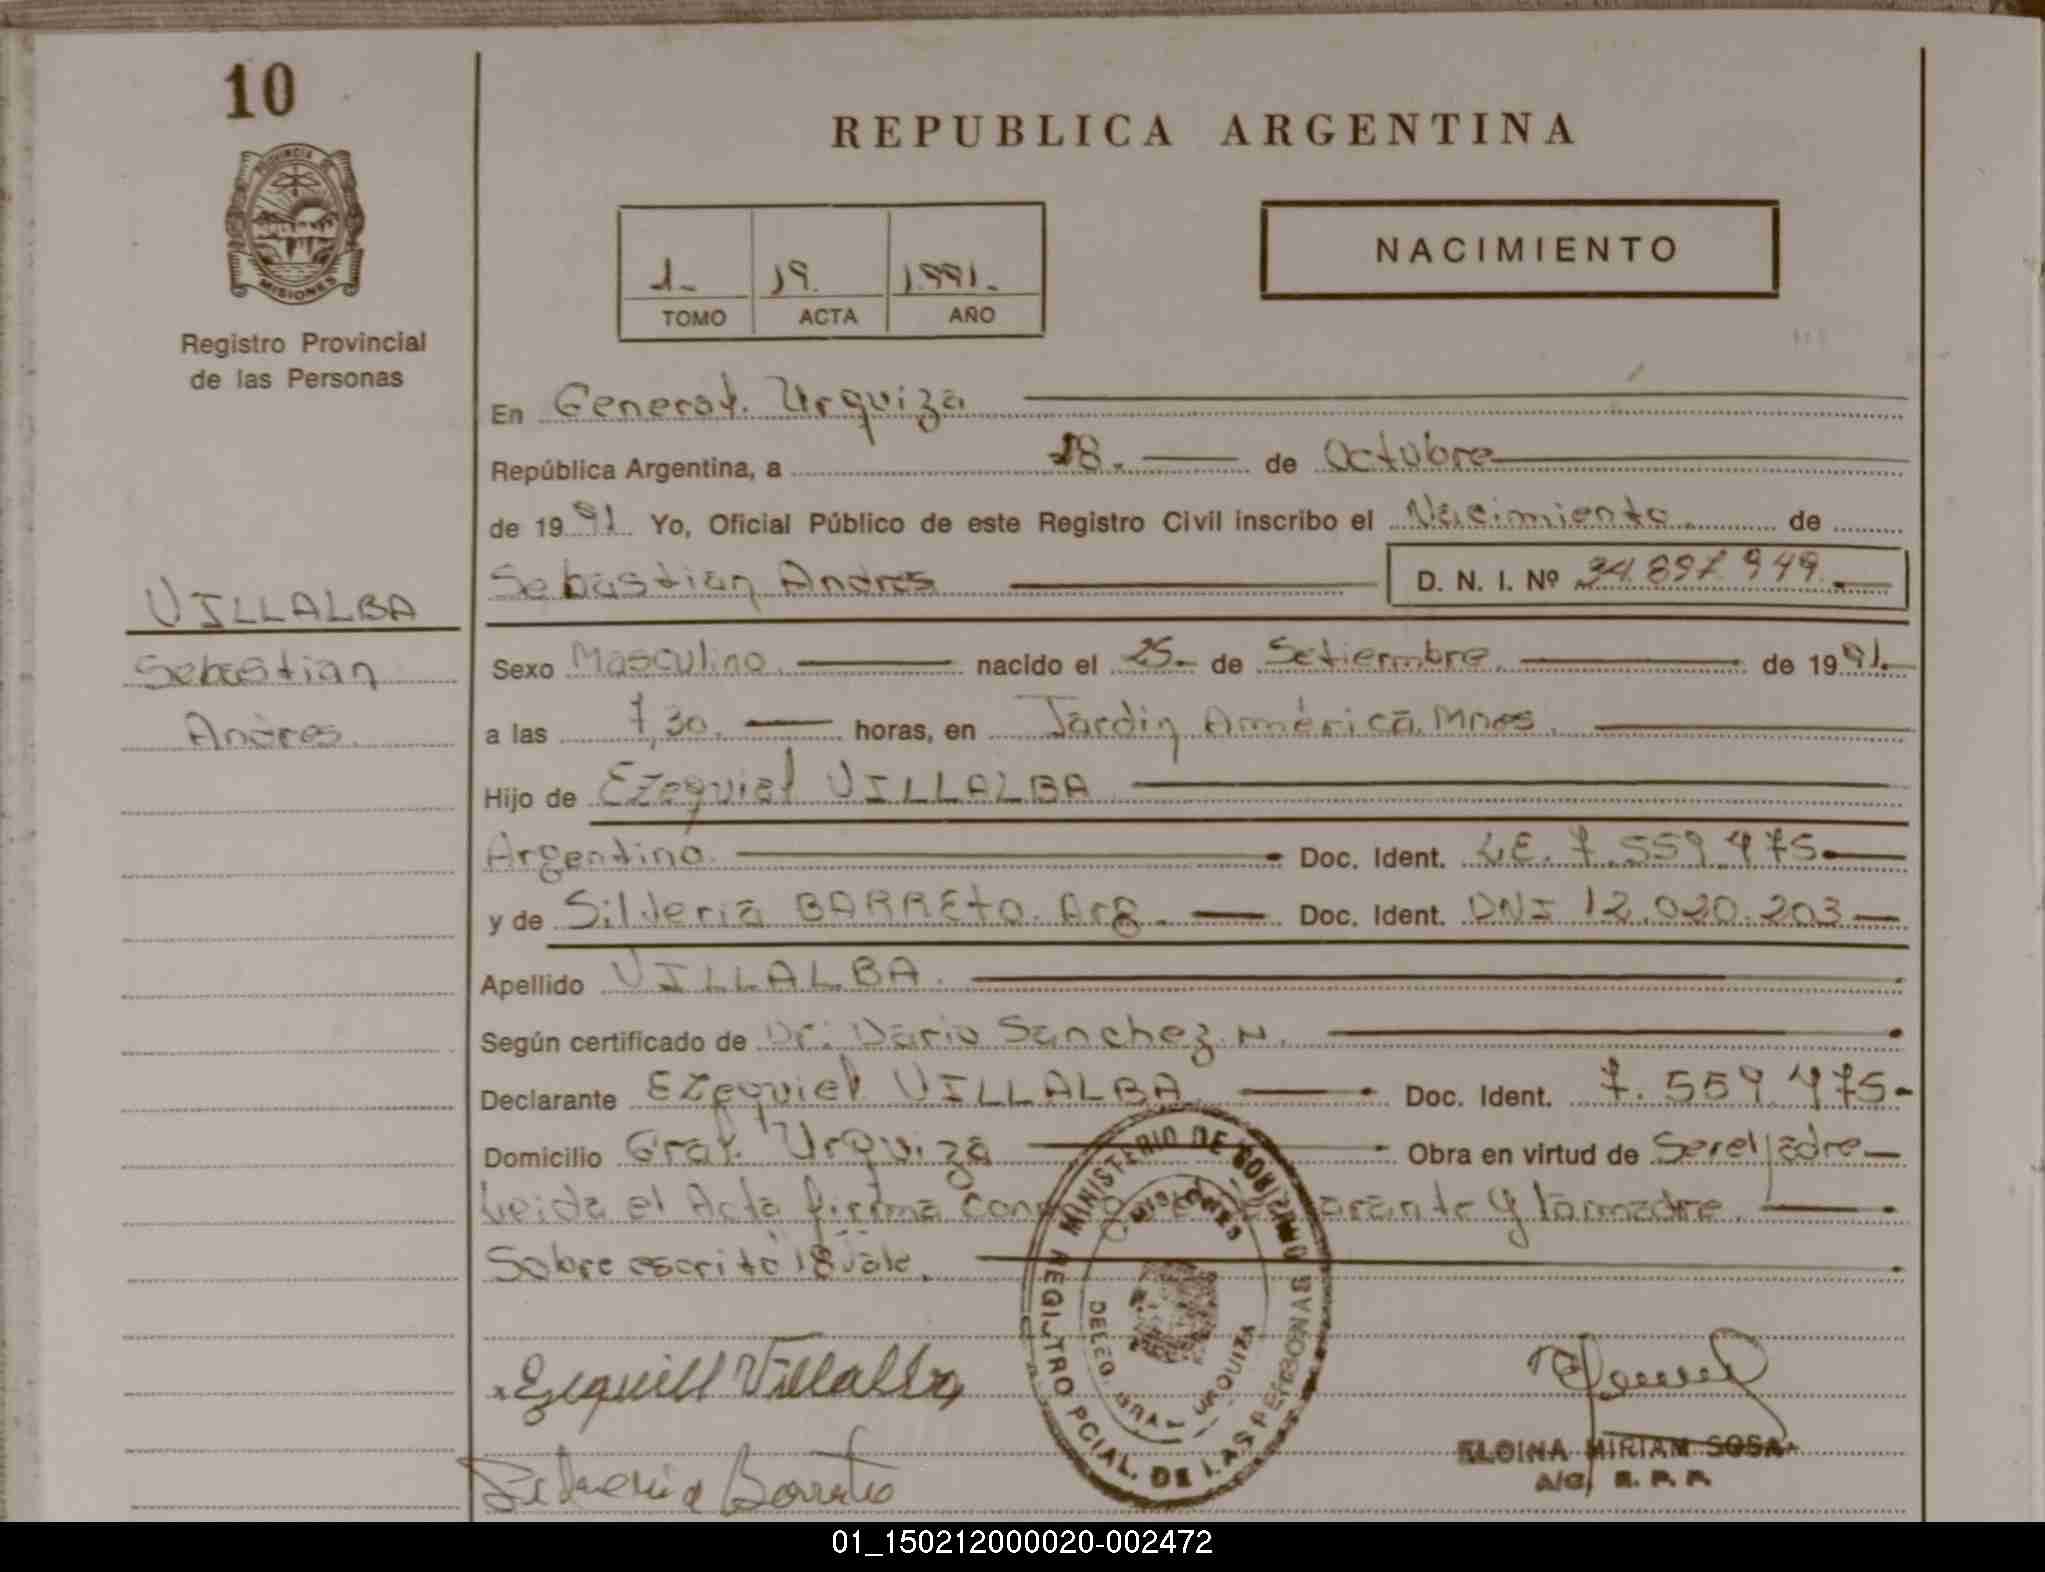 10
PROVINCIA DE
MISIONES
Registro Provincial
de las Personas
REPUBLICA ARGENTINA
1- 19. 1.991.
TOMO ACTA AÑO
NACIMIENTO
En General. Urquiza
República Argentina, a 18. de Octubre
de 1991. Yo, Oficial Público de este Registro Civil inscribo el Nacimiento de
Sebastian Andres D. N. I. Nº 34.897.949
VILLALBA
Sebastian
Andres.
Sexo Masculino. nacido el 25. de Setiembre. de 1991.
a las 7,30. horas, en Jardin América. Mnes.
Hijo de Ezequiel VILLALBA
Argentino. Doc. Ident. LE. 7.559.475
y de Silveria BARRETO. Arg. Doc. Ident. DNI 12.020.203
Apellido VILLALBA.
Según certificado de Dr: Dario Sanchez. N.
Declarante Ezequiel VILLALBA Doc. Ident. 7.559.475-
Domicilio Gral. Urquiza Obra en virtud de Ser el padre
Leida el Acta firma y la madre.
Sobre escrito 18 vale.
MINISTERIO DE GOBIERNO
MISIONES
REGISTRO PCIAL. DE LAS PERSONAS
DELEG. GRAL URQUIZA
Ezequiel Villalba
Silveria Barreto
ELOINA MIRIAM SOSA
A/C, R. P. P.
01_150212000020-002472